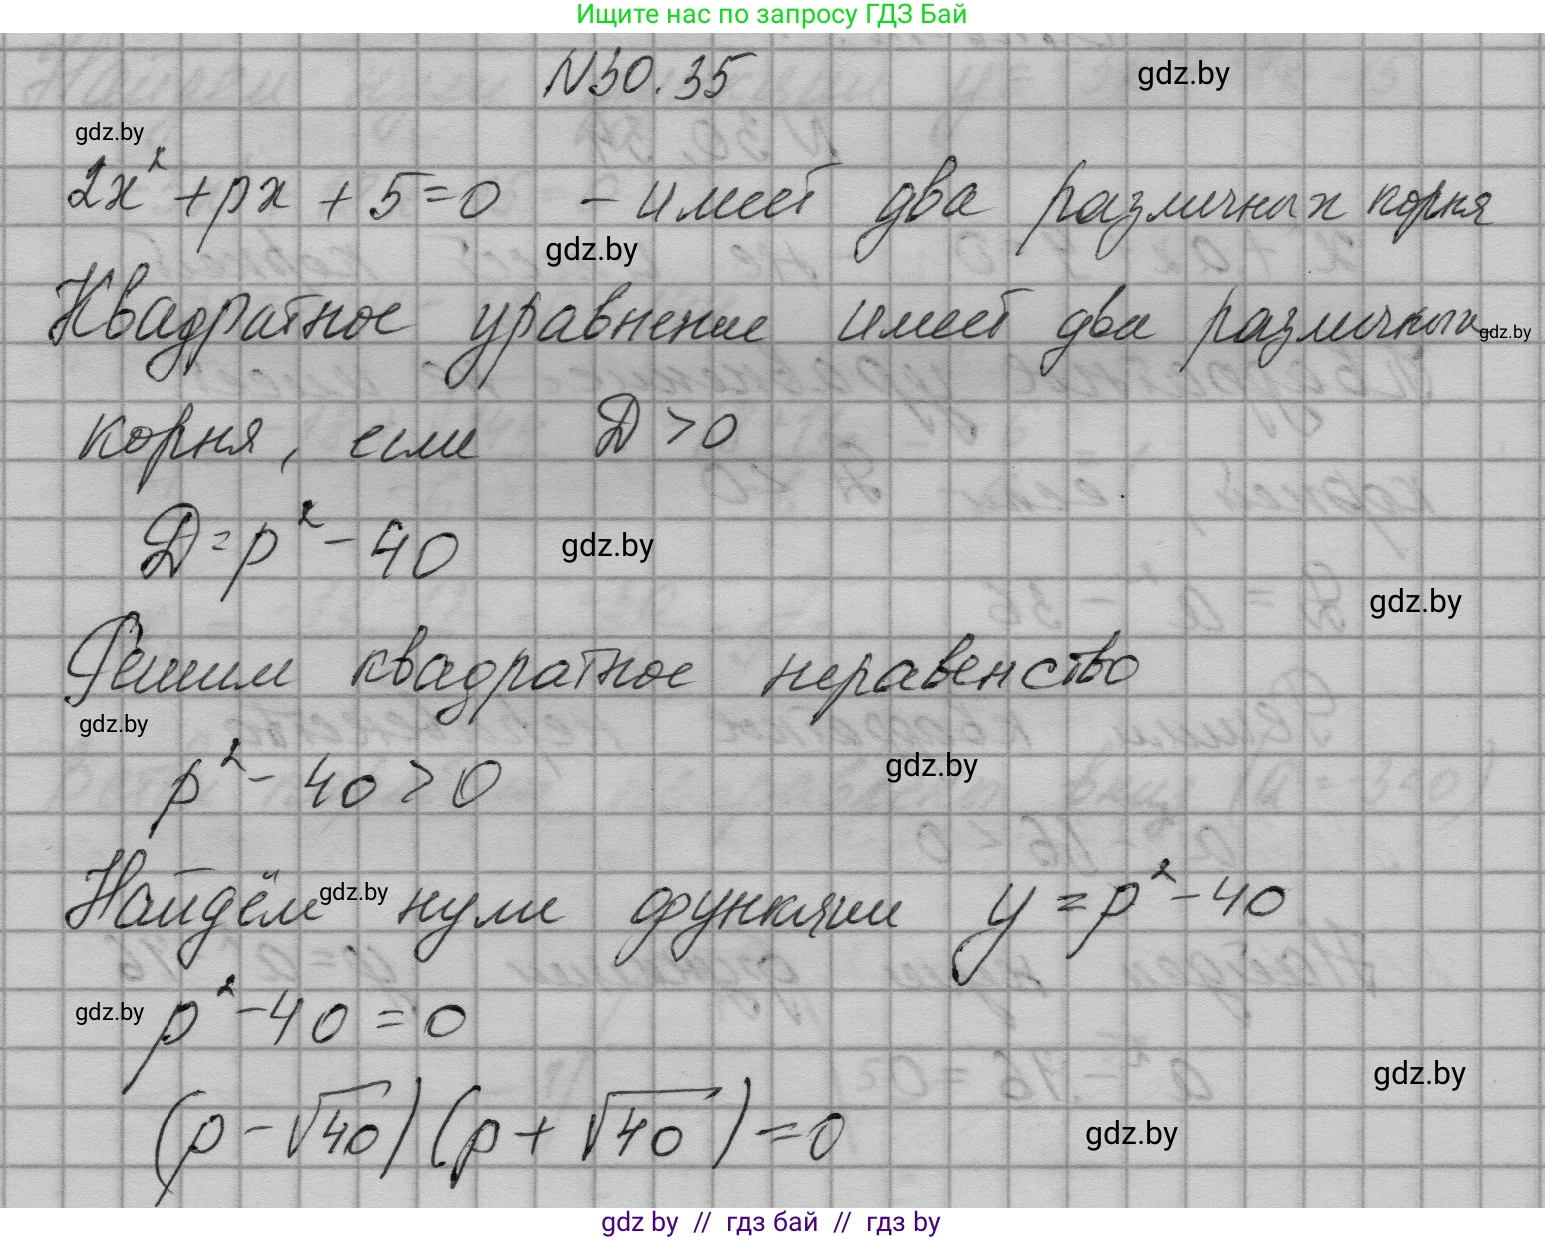 Ищите нас по запросу ГДЗ Бай
N30.35
gdz.by
gdz.by
2x² + px + 5 = 0 - имеет два различных корня
gdz.by
Квадратное уравнение имеет два различных
gdz.by
корня, если D > 0
D = p² - 40
gdz.by
gdz.by
Решим квадратное неравенство
gdz.by
p² - 40 > 0
gdz.by
Найдём нули функции y = p² - 40
gdz.by
p² - 40 = 0
gdz.by
gdz.by
(p - √40)(p + √40) = 0
gdz.by
gdz by // гдз бай // гдз by